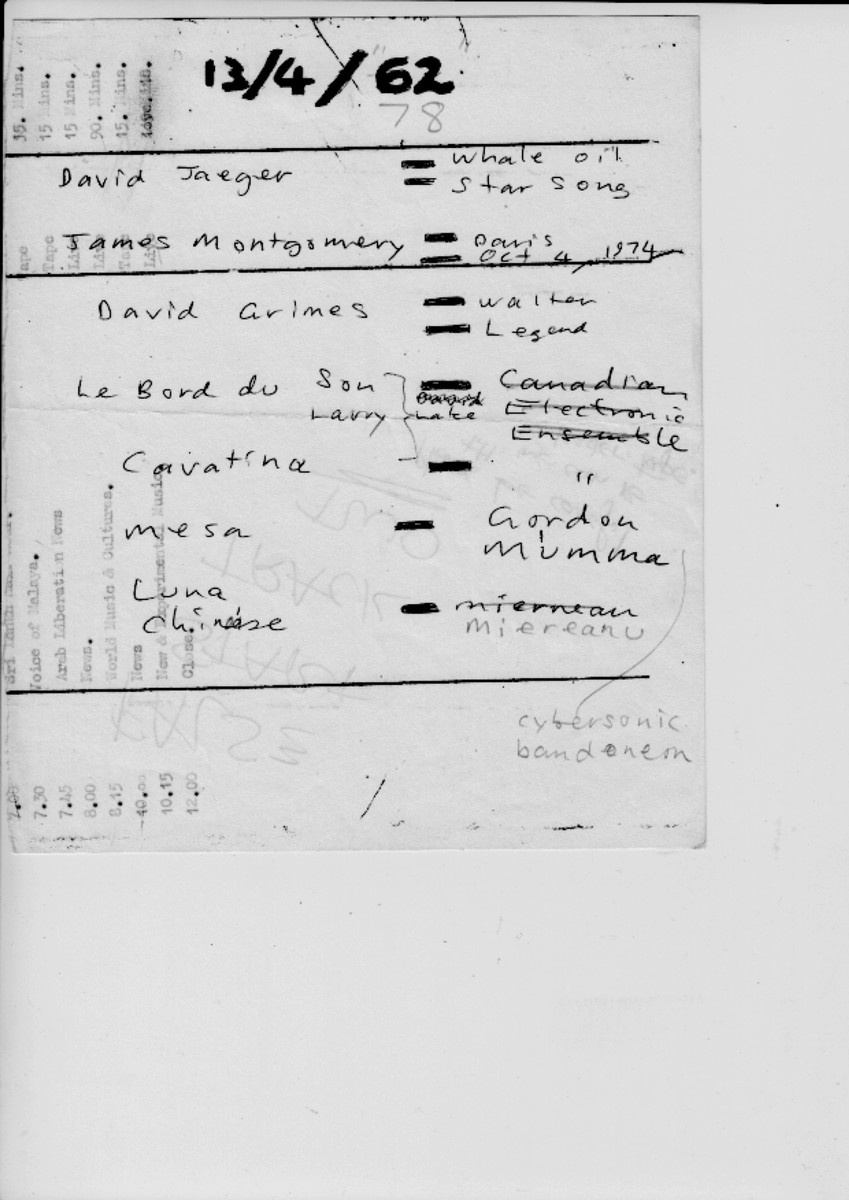 13/4/62
78
David Jaeger = Whale oil
Star Song
James Montgomery = Paris
Oct 4, 1974
David Grimes - Walter
- Legend
Le Bord du Son - Canadian
Larry Lake Electronic
Ensemble
Cavatina - "
Mesa - Gordon
Mumma
Luna
Chinese - Miereanu
Miereanu
cybersonic
bandoneon
15 Mins.
15 Mins.
90. Mins.
15. Mins.
Tape
Tape
Live
Live
Tape
Live
Voice of Malaya.
Arab Liberation News
News.
World Music & Cultures.
News
New & Experimental Music
Close
7.00
7.30
7.45
8.00
8.15
10.00
10.15
12.00